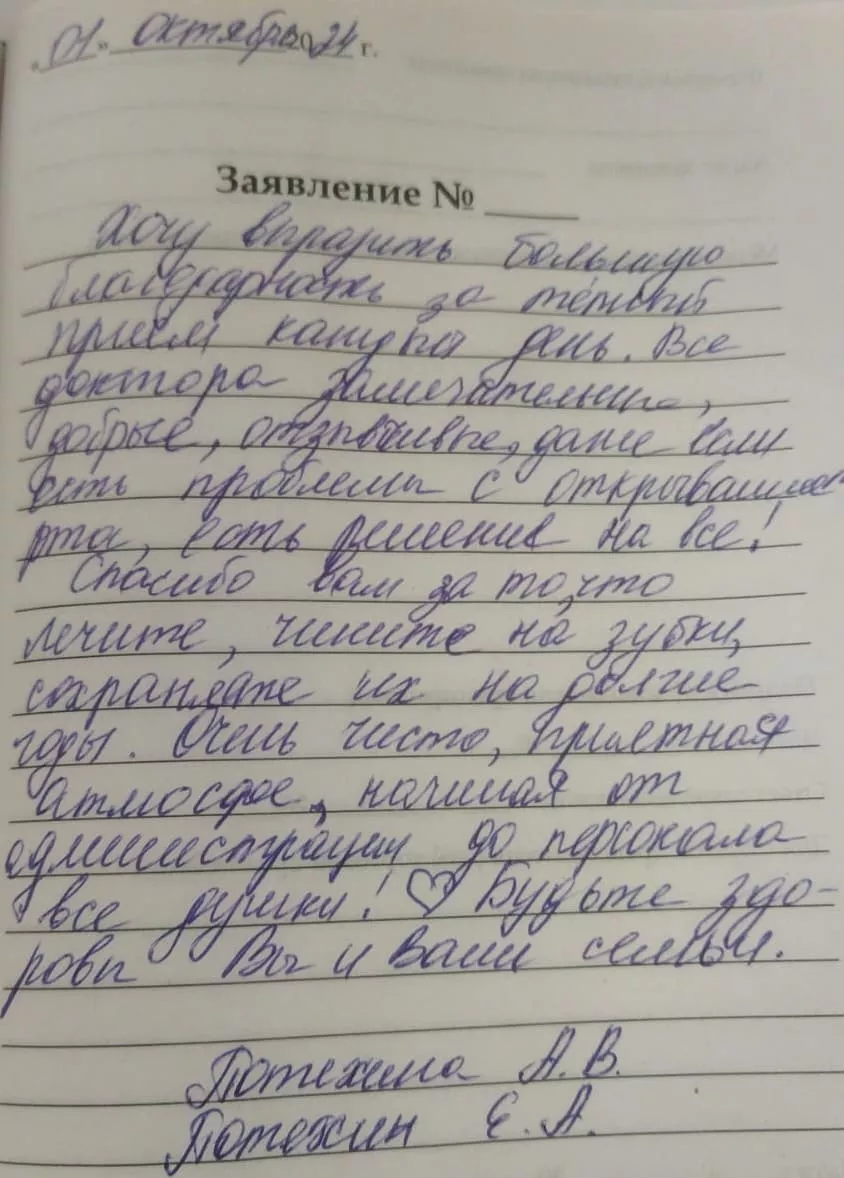 «01» октября 2024 г.
Заявление № ____
Хочу выразить большую
благодарность за тёплый
приём каждый день. Все
доктора замечательные,
добрые, отзывчивые, даже если
есть проблемы с открыванием
рта, есть решение на все!
Спасибо вам за то, что
лечите, чините на зубки,
сохраняете их на долгие
годы. Очень чисто, приятная
атмосфера, начиная от
администрации до персонала
все душки! ♡ Будьте здо-
ровы Вы и ваши семьи.
Потехина А. В.
Потехин Е. А.